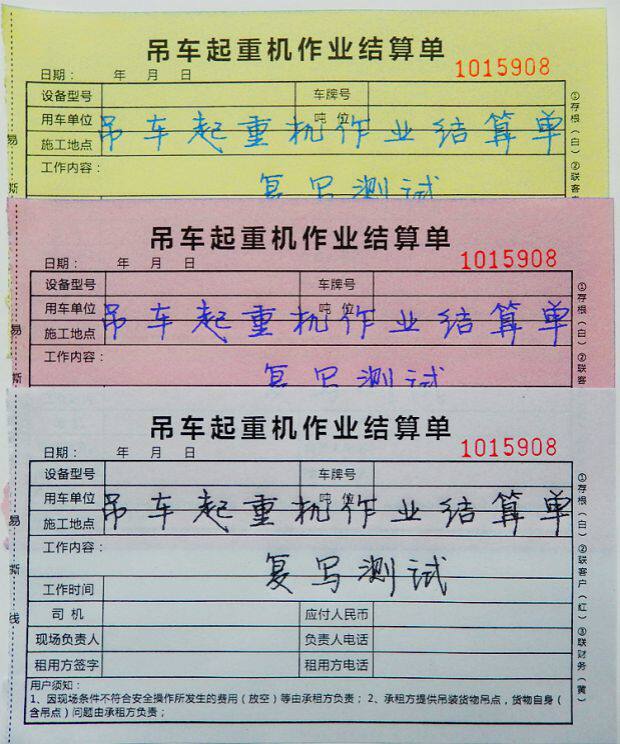 吊车起重机作业结算单
1015908
日期： 年 月 日
设备型号 车牌号
用车单位 吨 位
吊车起重机作业结算单
施工地点
工作内容：
复写测试
①存根（白）②联客户
易 斯
吊车起重机作业结算单
1015908
日期： 年 月 日
设备型号 车牌号
用车单位 吨 位
吊车起重机作业结算单
施工地点
工作内容：
复写测试
①存根（白）②联客
易 斯
吊车起重机作业结算单
1015908
日期： 年 月 日
设备型号 车牌号
用车单位 吨 位
吊车起重机作业结算单
施工地点
工作内容：
复写测试
工作时间
司 机 应付人民币
现场负责人 负责人电话
租用方签字 租用方电话
用户须知：
1、因现场条件不符合安全操作所发生的费用（放空）等由承租方负责； 2、承租方提供吊装货物吊点，货物自身（
含吊点）问题由承租方负责；
①存根（白）②联客户（红）③联财务（黄）
易 斯 线